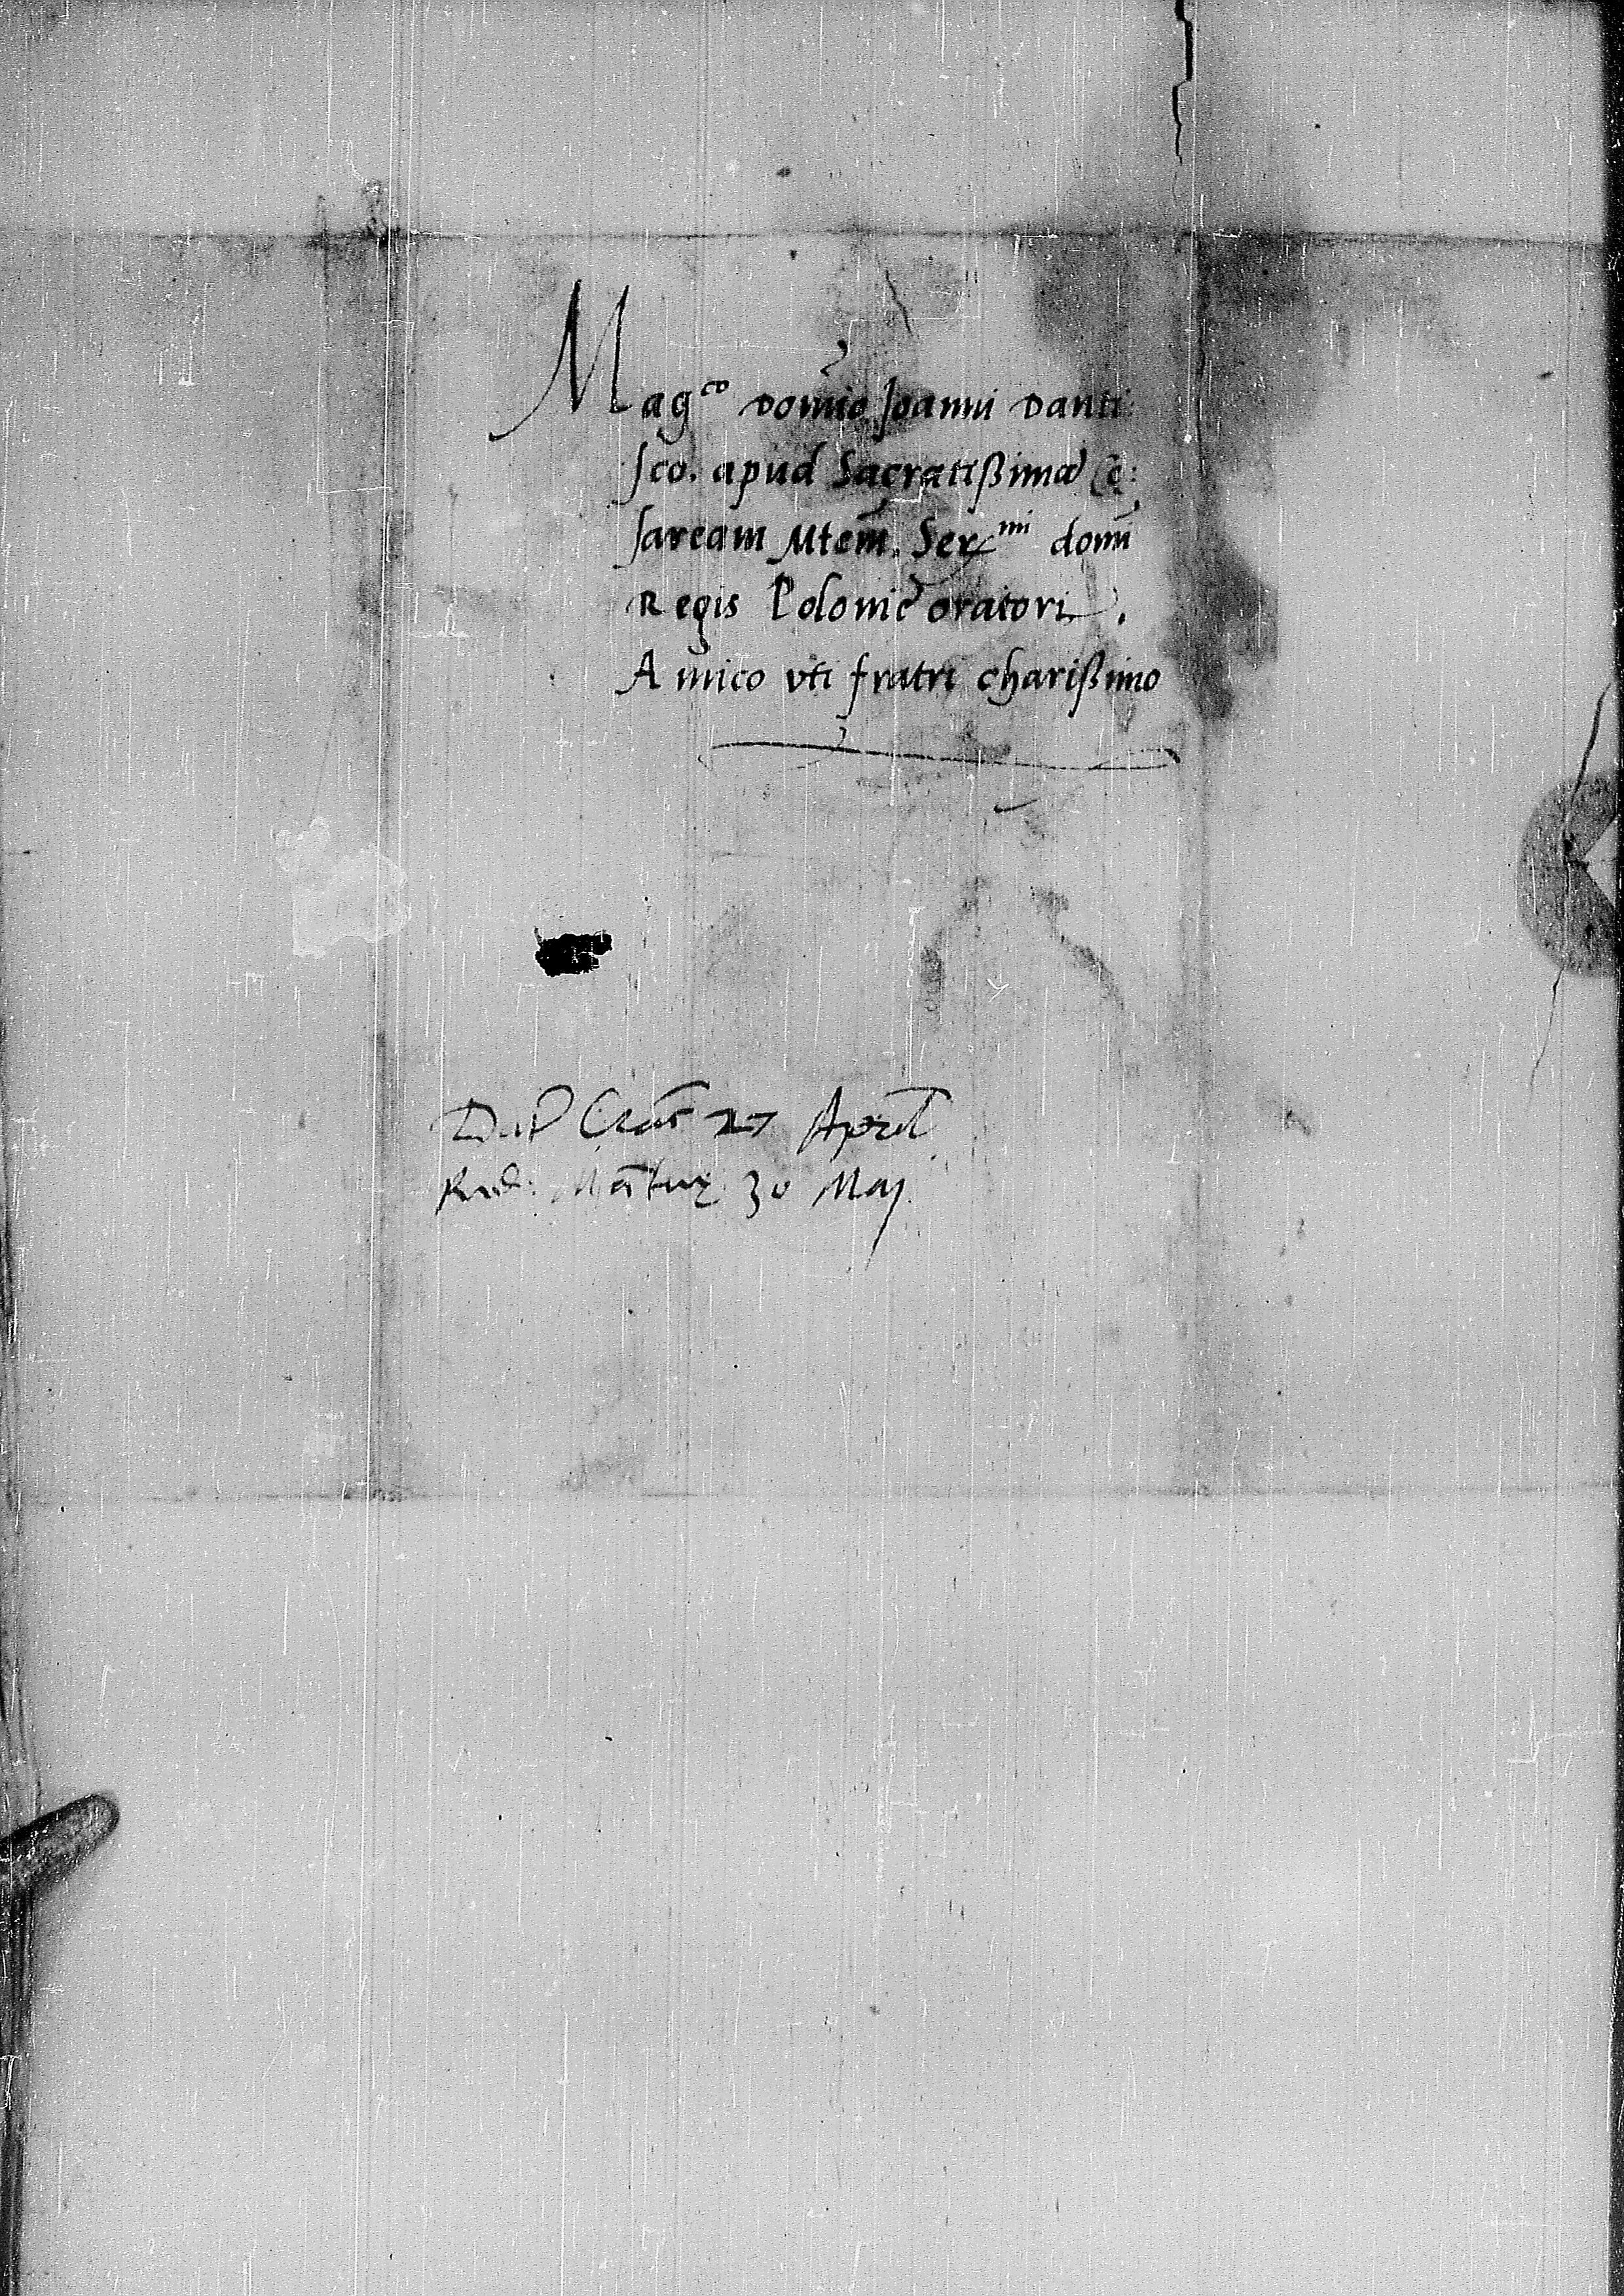 Mag^co Domĩo Joanni Danti:
sco. apud Sacratißimã Cę:
saream Mtem̃. Ser^mi domı̃
Regis Polonię oratori.
Amico vti fratri charißimo
Dat Crac̃ 27 April
Red: Mãtuę 30 Maij